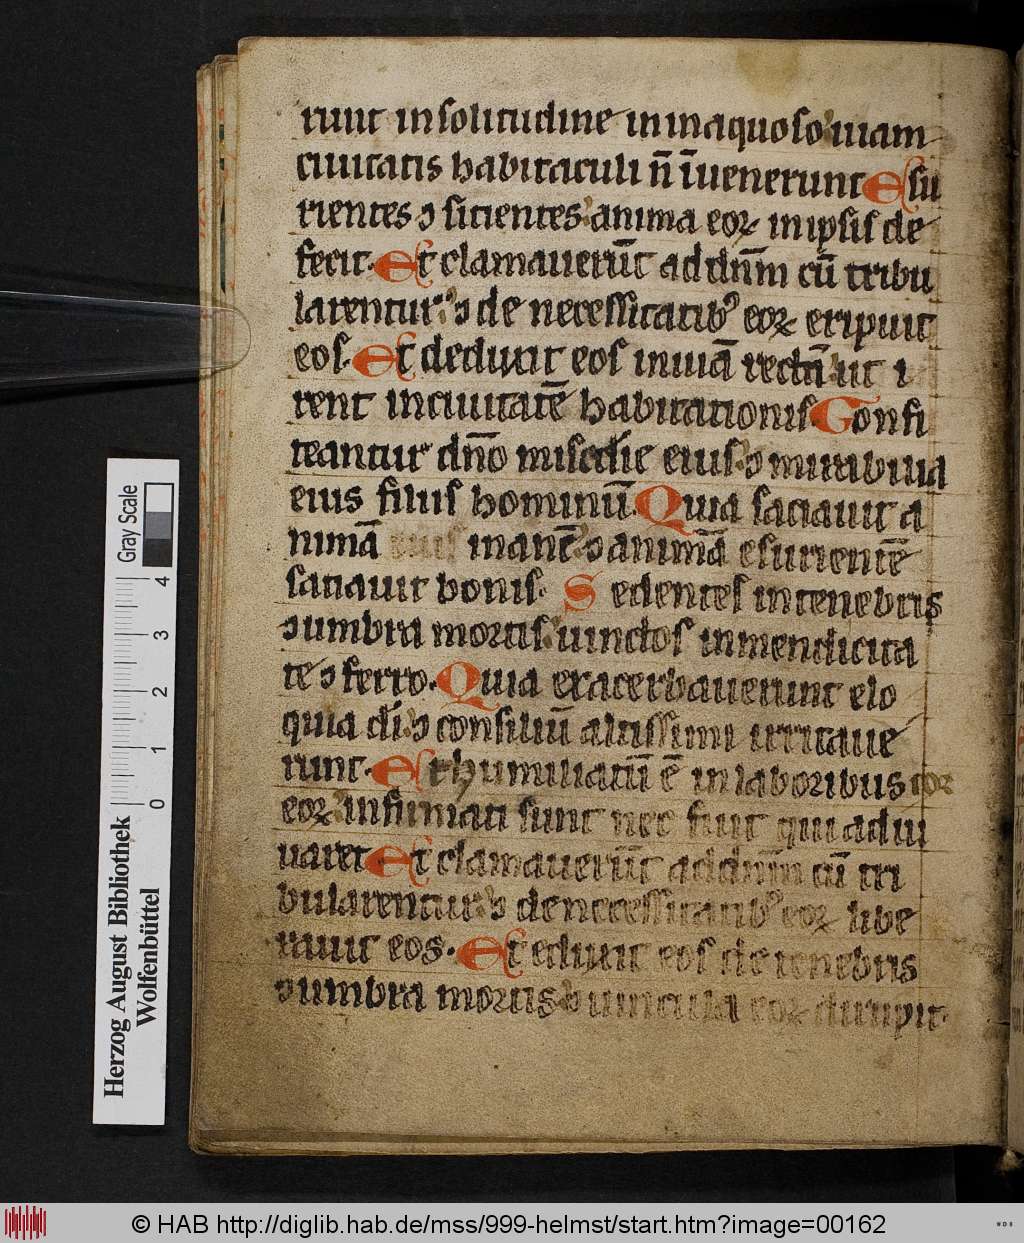 runt in solitudine in inaquoso uiam
ciuitatis habitaculi n̄ īuenerunt Esu
rientes ⁊ sitientes anima eoꝝ in ipsis de
fecit. Et clamauerūt ad dn̄m cū tribu
larentur ⁊ de necessitatibꝰ eoꝝ eripuit
eos. Et deduxit eos in uiā rectā ut i
rent in ciuitatē habitationis. Confi
teantur dn̄o misc̄die eius ⁊ mirabilia
eius filiis hominū. Quia saciauit a
nimā inanē ⁊ animā esurientē
satiauit bonis. Sedentes in tenebris
⁊ umbra mortis uinctos in mendicita
te ⁊ ferro. Quia exacerbauerunt elo
quia dī ⁊ consiliū altissimi irritaue
runt. Et humiliatū ē in laboribus cor
eoꝝ infirmati sunt nec fuit qui adiu
uaret Et clamauerūt ad dn̄m cū tri
bularentur ⁊ de necessitatibꝰ eoꝝ libe
rauit eos. Et eduxit eos de tenebris
⁊ umbra mortis ⁊ uincula eoꝝ dirupit.
Gray Scale
4
3
2
1
0
Herzog August Bibliothek
Wolfenbüttel
© HAB http://diglib.hab.de/mss/999-helmst/start.htm?image=00162
WDB